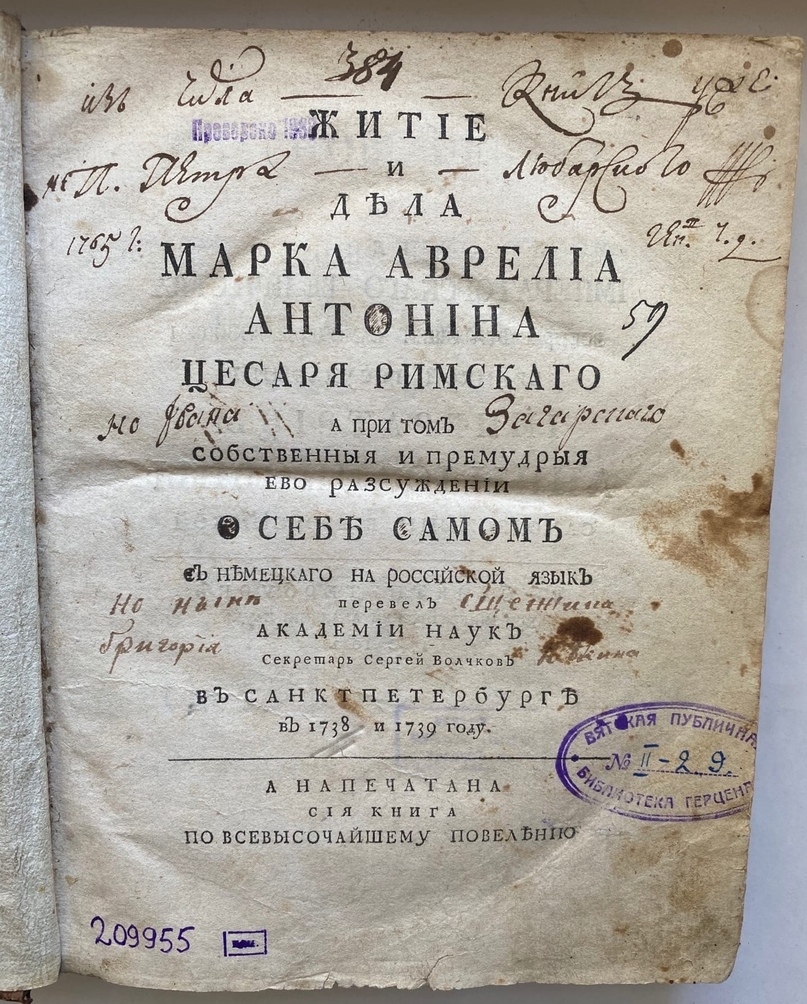 изъ числа 384 книгъ
Проверено
ЖИТІЕ
И
П. Петра Любарского
ДѢЛА
1765 г:
МАРКА АВРЕЛІА
АНТОНІНА
59
ЦЕСАРЯ РИМСКАГО
но Ивана Загарскаго
А ПРИ ТОМЪ
СОБСТВЕННЫЯ И ПРЕМУДРЫЯ
ЕВО РАЗСУЖДЕНІИ
О СЕБѢ САМОМЪ
СЪ НѢМЕЦКАГО НА РОССІЙСКОЙ ЯЗЫКЪ
но нынѣ
перевелъ
АКАДЕМІИ НАУКЪ
Григорія
Секретарь Сергей Волчковъ
ВЪ САНКТПЕТЕРБУРГѢ
въ 1738 и 1739 году.
ВЯТСКАЯ ПУБЛИЧНАЯ
№ II-29.
БИБЛИОТЕКА ГЕРЦЕНА
А НАПЕЧАТАНА
СІЯ КНИГА
ПО ВСЕВЫСОЧАЙШЕМУ ПОВЕЛѢНІЮ
209955